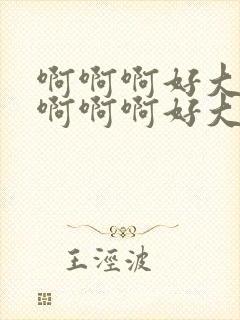 啊啊啊好大
啊啊啊好大
王淫波